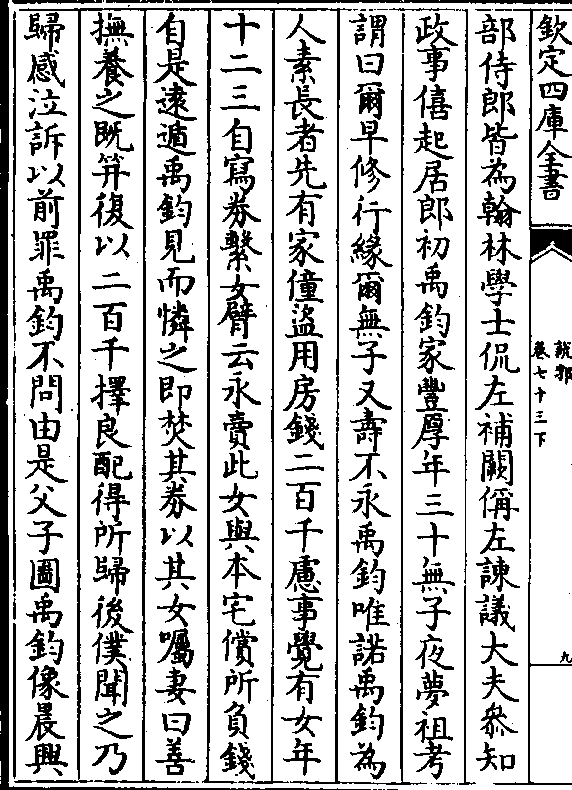 欽定四庫全書
說郛
卷七十三下
九
部侍郎皆為翰林學士侃左補闕偁左諫議大夫叅知
政事僖起居郎初禹鈞家豐厚年三十無子夜夢祖考
謂曰爾早修行緣爾無子又壽不永禹鈞唯諾禹鈞為
人素長者先有家僮盜用房錢二百千慮事覺有女年
十二三自寫券繫女臂云永賣此女與本宅償所負錢
自是遠遁禹鈞見而憐之即焚其券以其女囑妻曰善
撫養之既笄復以二百千擇良配得所歸後僕聞之乃
歸感泣訴以前罪禹鈞不問由是父子圖禹鈞像晨興